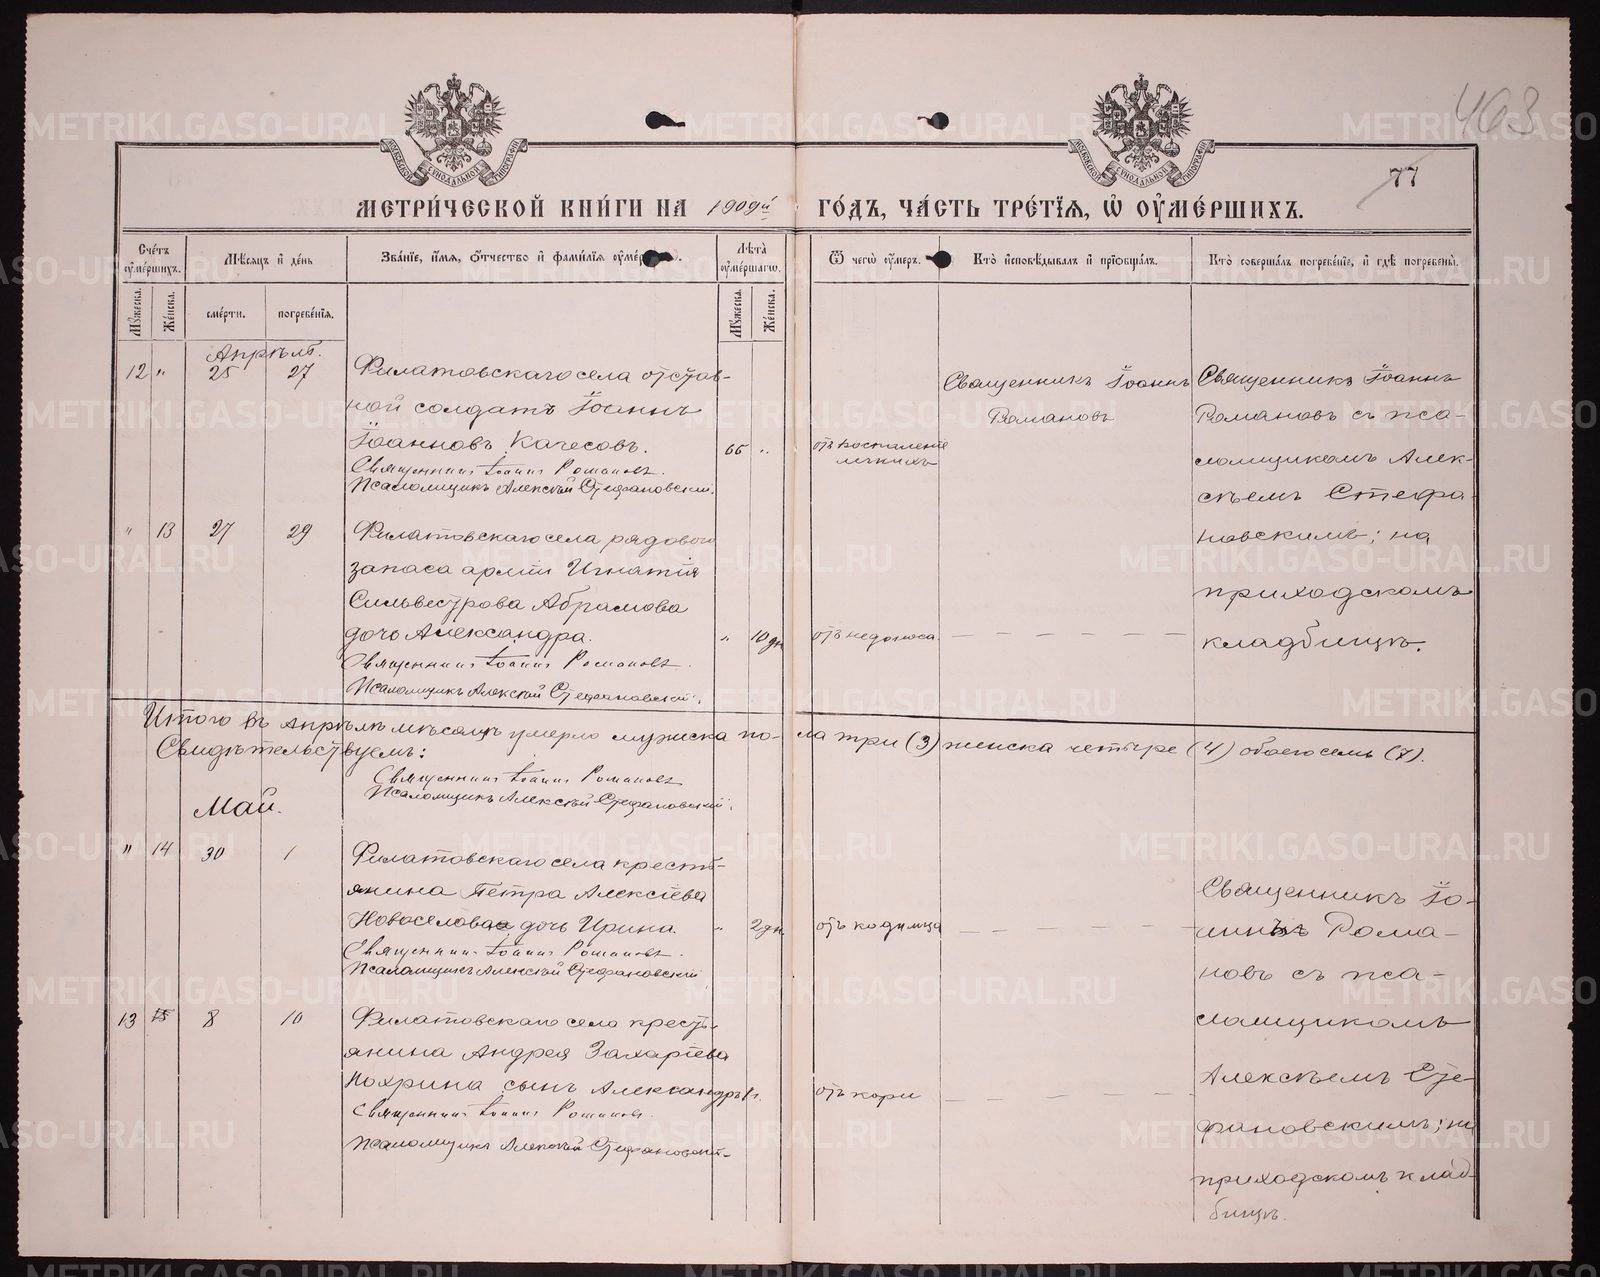 463
77
МОСКОВСКОЙ СѴНОДАЛЬНОЙ ТИПОГРАФІИ
МОСКОВСКОЙ СѴНОДАЛЬНОЙ ТИПОГРАФІИ
МЕТРИ́ЧЕСКОЙ КНИ́ГИ НА 1909й ГО́ДЪ, ЧА́СТЬ ТРЕ́ТІѦ, Ѡ ОУ҆МЕ́РШИХЪ.
Сче́тъ оу҆ме́ршихъ.
Мѣ́сѧцъ и҆ де́нь
Зва́нїе, и҆́мѧ, ѻ҆́тчество и҆ фамилїѧ
Лѣ́та оу҆ме́ршагѡ.
Ѿ чегѡ̀ оу҆́меръ.
Кто̀ и҆сповѣ́дывалъ и҆ прїѡбща́лъ.
Кто̀ соверша́лъ погребе́нїе, и҆ гдѣ̀ погребены̀.
Мꙋ́жеска.
Же́нска.
сме́рти.
погребе́нїѧ.
Мꙋ́жеска.
Же́нска.
Апрѣль.
12 " 25 27
Филатовскаго села отстав-
ной солдатъ Іоаннъ
Іоанновъ Качесовъ.
Священникъ Іоаннъ Романовъ.
Псаломщикъ Алексѣй Стефановскій.
"
отъ воспаленіе
легкихъ
Священникъ Іоаннъ
Романовъ
Священникъ Іоаннъ
Романовъ съ пса-
ломщикомъ Алек-
сѣемъ Стефа-
новскимъ; на
приходскомъ
кладбищѣ.
" 13 27 29
Филатовскаго села рядового
запаса арміи Игнатія
Сильвестрова Абрамова
дочь Александра.
Священникъ Іоаннъ Романовъ.
Псаломщикъ Алексѣй Стефановскій.
" 10 дн
отъ недоноса.
Итого въ Апрѣлѣ мѣсяцѣ умерло мужска по- ла три (3) женска четыре (4) обоего семь (7).
Свидѣтельствуемъ:
Священникъ Іоаннъ Романовъ
Псаломщикъ Алексѣй Стефановскій.
Май.
" 14 30 1
Филатовскаго села кресть-
янина Петра Алексіева
Новоселова дочь Ирина.
Священникъ Іоаннъ Романовъ.
Псаломщикъ Алексѣй Стефановскій
" 2 дн.
отъ родимца
Священникъ Іо-
аннъ Рома-
новъ съ пса-
ломщикомъ
Алексѣемъ Сте-
фановскимъ; на
приходскомъ клад-
бищѣ.
13 15 8 10
Филатовскаго села кресть-
янина Андрея Захаріева
Похрина сынъ Александръ 1 г.
Священникъ Іоаннъ Романовъ.
Псаломщикъ Алексѣй Стефановскій-
отъ кори
METRIKI.GASO-URAL.RU